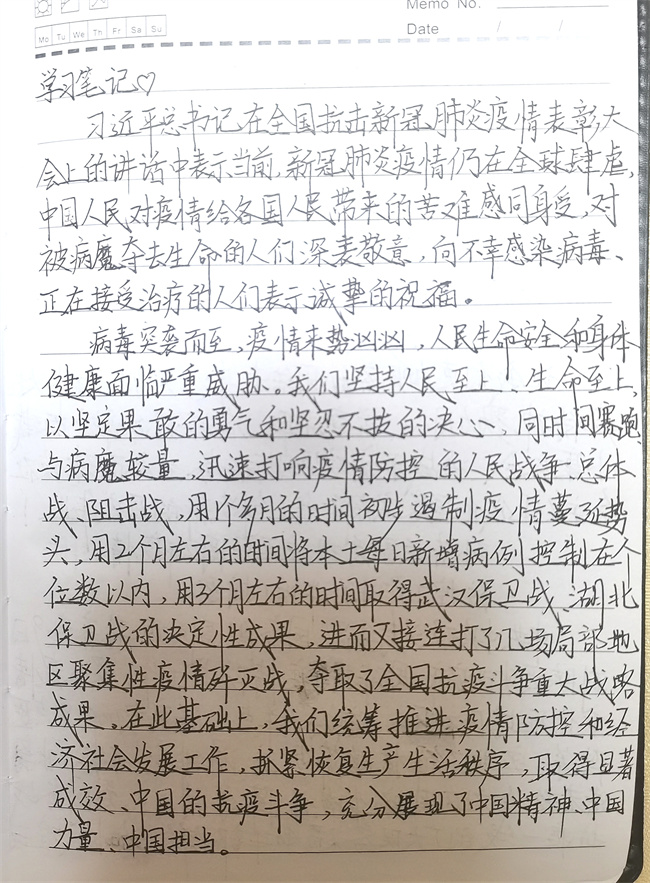 Memo No.
Mo Tu We Th Fr Sa Su
Date / /
学习笔记♡
习近平总书记在全国抗击新冠肺炎疫情表彰大
会上的讲话中表示当前,新冠肺炎疫情仍在全球肆虐,
中国人民对疫情给各国人民带来的苦难感同身受,对
被病魔夺去生命的人们深表敬意,向不幸感染病毒、
正在接受治疗的人们表示诚挚的祝福。
病毒突袭而至,疫情来势汹汹,人民生命安全和身体
健康面临严重威胁。我们坚持人民至上、生命至上,
以坚定果敢的勇气和坚忍不拔的决心,同时间赛跑、
与病魔较量,迅速打响疫情防控的人民战争、总体
战、阻击战,用1个多月的时间初步遏制疫情蔓延势
头,用2个月左右的时间将本土每日新增病例控制在个
位数以内,用3个月左右的时间取得武汉保卫战、湖北
保卫战的决定性成果,进而又接连打了几场局部地
区聚集性疫情歼灭战,夺取了全国抗疫斗争重大战略
成果。在此基础上,我们统筹推进疫情防控和经
济社会发展工作,抓紧恢复生产生活秩序,取得显著
成效、中国的抗疫斗争,充分展现了中国精神、中国
力量、中国担当。